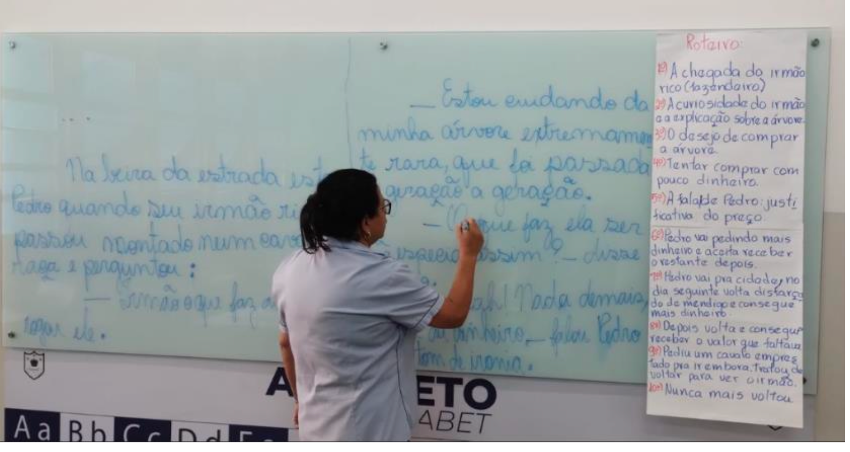 Na beira da estrada est
Pedro quando seu irmão ri
passou montado num cava
e perguntou:
— Irmão o que faz a
logou ele.
— Estou cuidando da
minha árvore extremamen
te rara, que foi passada
geração a geração.
— O que faz ela ser
especial assim? — disse
ah! Nada demais,
dinheiro, — falou Pedro
tom de ironia.
Roteiro:
1º) A chegada do irmão
rico (fazendeiro)
2º) A curiosidade do irmão
e a explicação sobre a árvore.
3º) O desejo de comprar
a árvore.
4º) Tentar comprar com
pouco dinheiro.
5º) A fala de Pedro: justi
ficativa do preço.
6º) Pedro vai pedindo mais
dinheiro e aceita receber
o restante depois.
7º) Pedro vai pra cidade, no
dia seguinte volta disfarça
do de mendigo e consegue
mais dinheiro.
8º) Depois volta e consegue
receber o valor que faltava
9º) Pediu um cavalo empres
tado pra ir embora. Tratou de
voltar para ver o irmão.
10º) Nunca mais voltou.
A ETO
ABET
Aa Bb Cc Dd